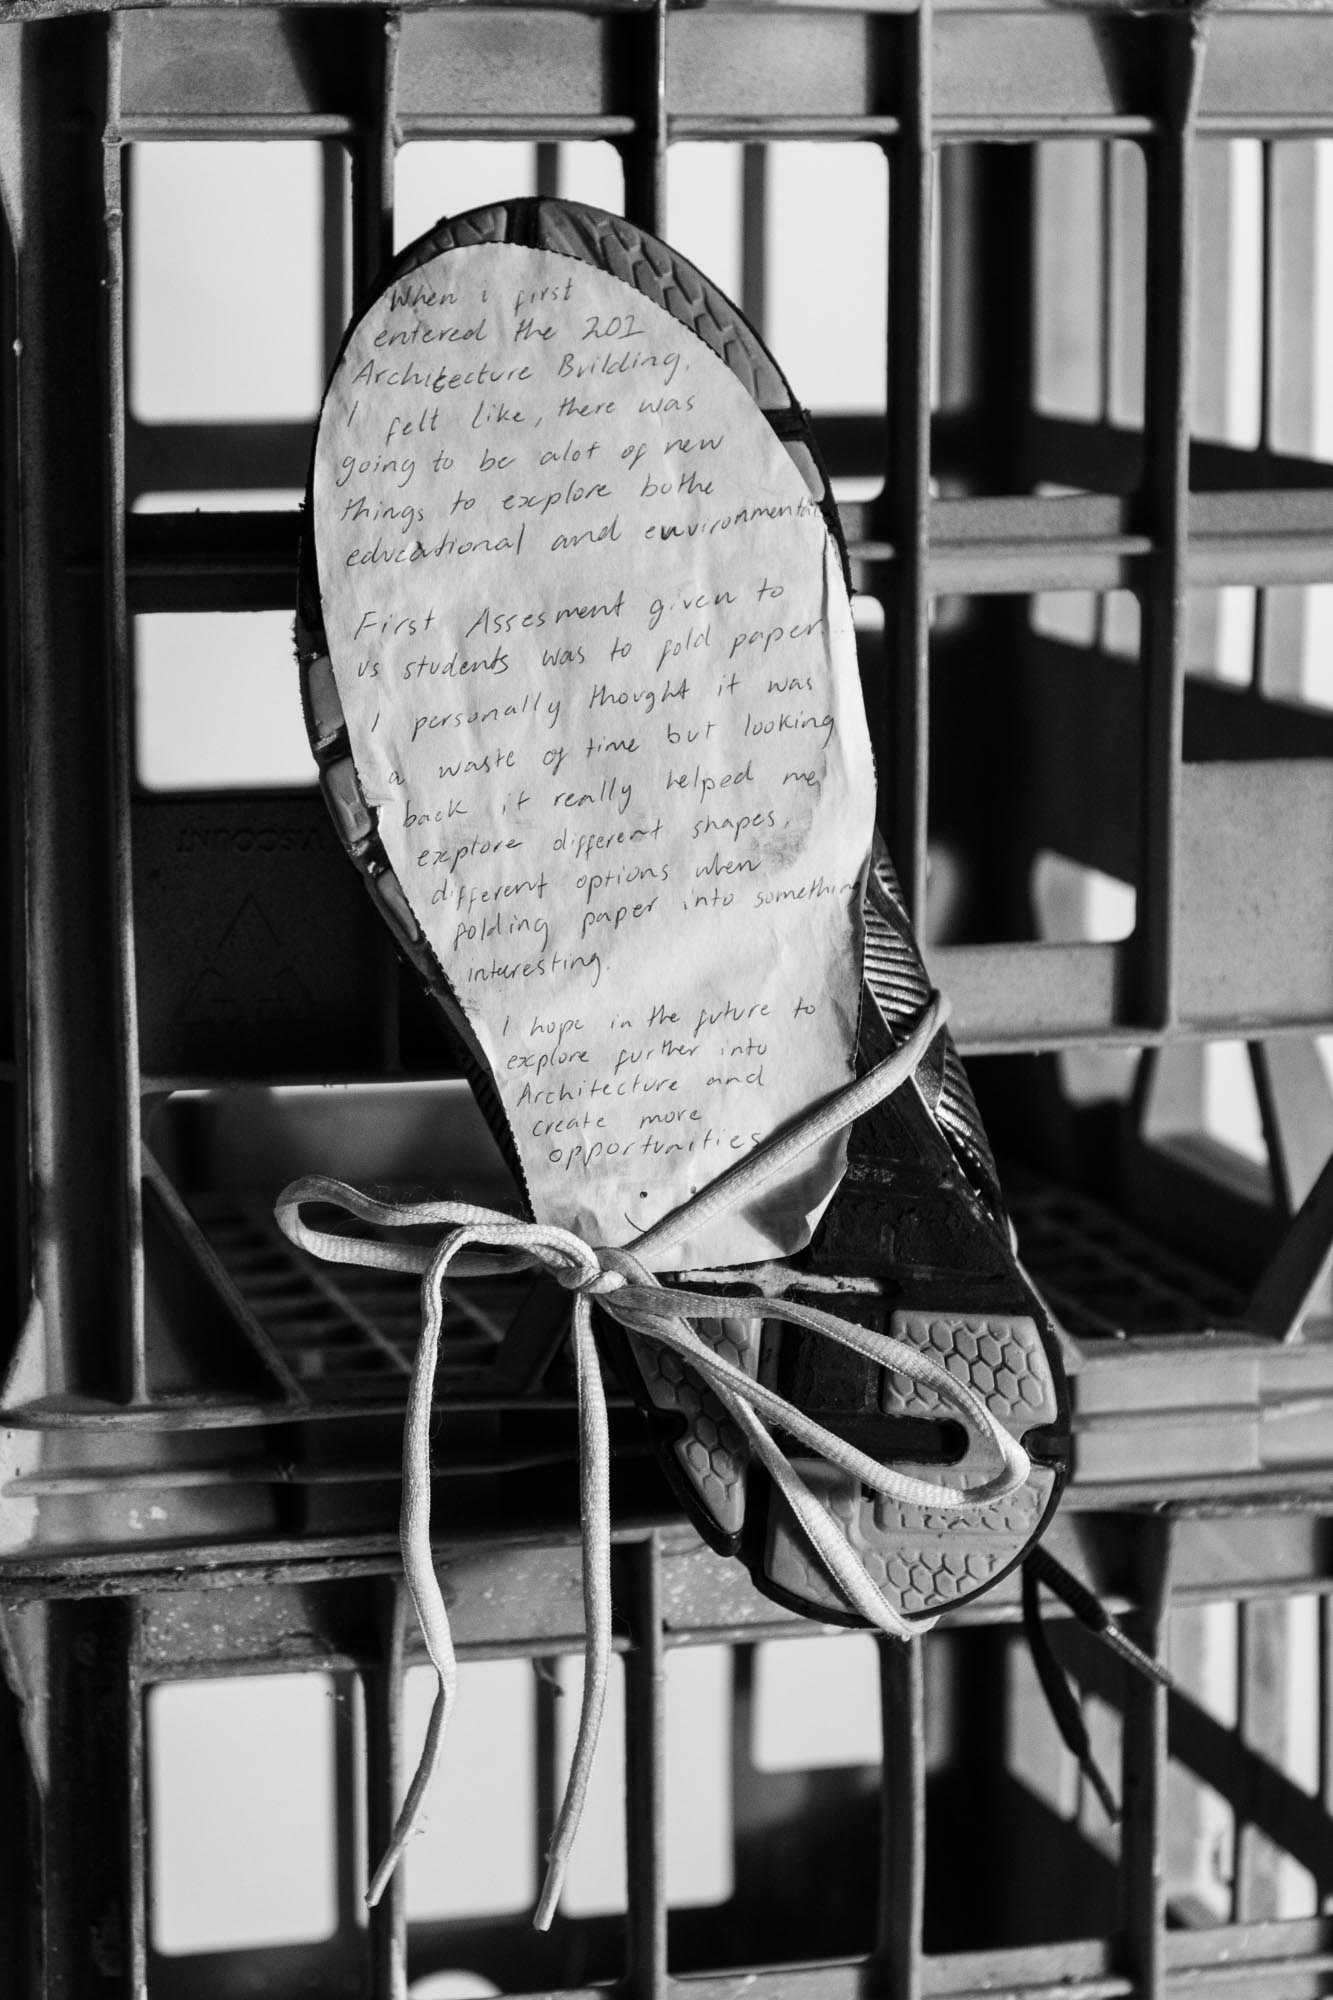 When i first
entered the 201
Architecture Building.
I felt like, there was
going to be alot of new
things to explore bothe
educational and environmental
First Assesment given to
us students was to fold paper.
I personally thought it was
a waste of time but looking
back it really helped me
explore different shapes,
different options when
folding paper into something
interesting.
I hope in the future to
explore further into
Architecture and
create more
opportunities
VISCOUNT